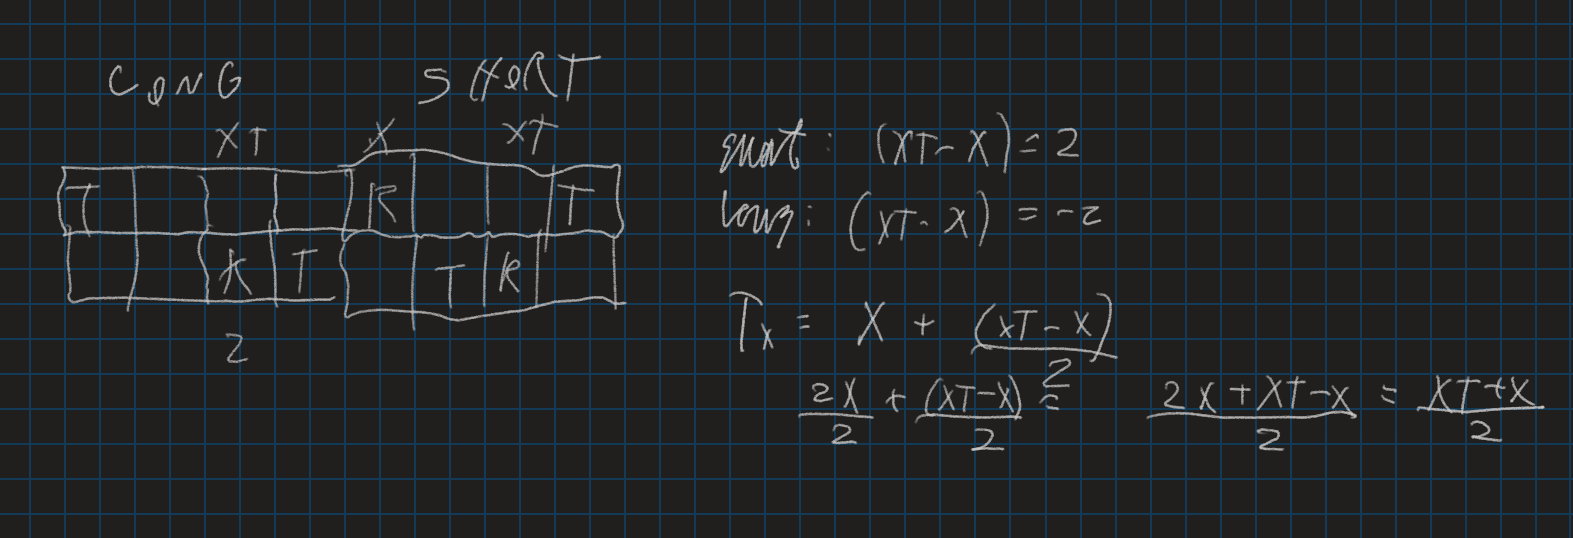 LONG SHORT
XT X XT
T R T
K T T R
2
short: (XT-X)=2
long: (XT-X) = -2
Tx = X + (XT-X)/2
2X/2 + (XT-X)/2 = (2X+XT-X)/2 = (XT+X)/2